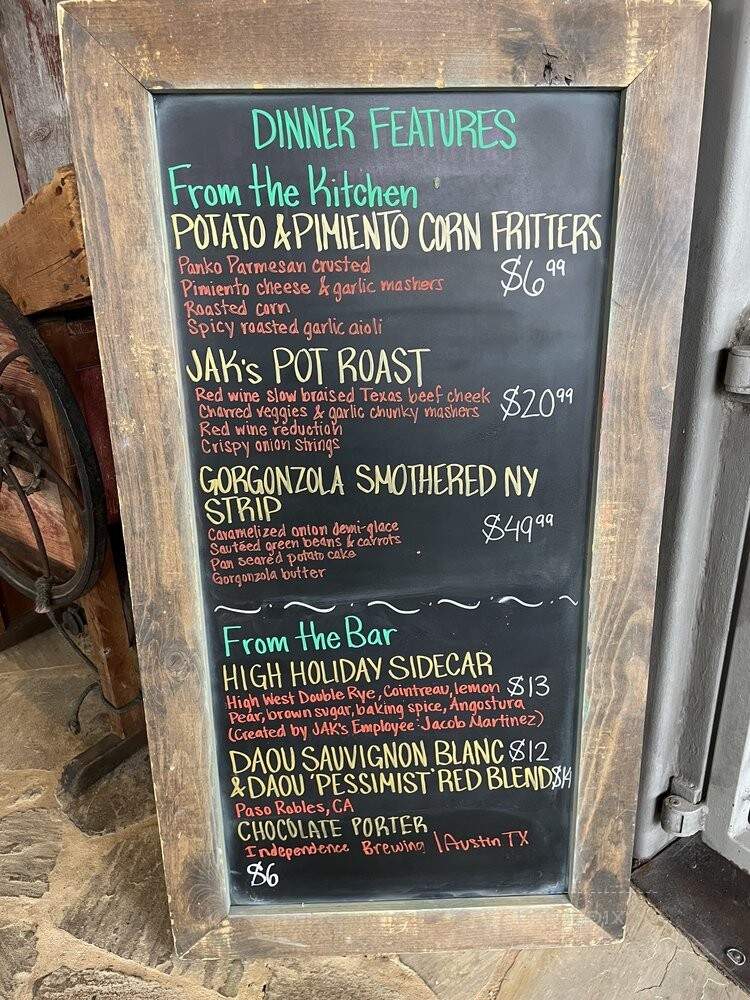 DINNER FEATURES
From the Kitchen
POTATO & PIMIENTO CORN FRITTERS
Panko Parmesan crusted $6.99
Pimiento cheese & garlic mashers
Roasted corn
Spicy roasted garlic aioli
JAK's POT ROAST
Red wine slow braised Texas beef cheek $20.99
Charred veggies & garlic chunky mashers
Red wine reduction
Crispy onion strings
GORGONZOLA SMOTHERED NY
STRIP
Caramelized onion demi-glace $49.99
Sautéed green beans & carrots
Pan seared potato cake
Gorgonzola butter
From the Bar
HIGH HOLIDAY SIDECAR
High West Double Rye, Cointreau, lemon $13
Pear, brown sugar, baking spice, Angostura
(Created by JAK's Employee: Jacob Martinez)
DAOU SAUVIGNON BLANC $12
& DAOU 'PESSIMIST' RED BLEND $14
Paso Robles, CA
CHOCOLATE PORTER
Independence Brewing | Austin TX
$6